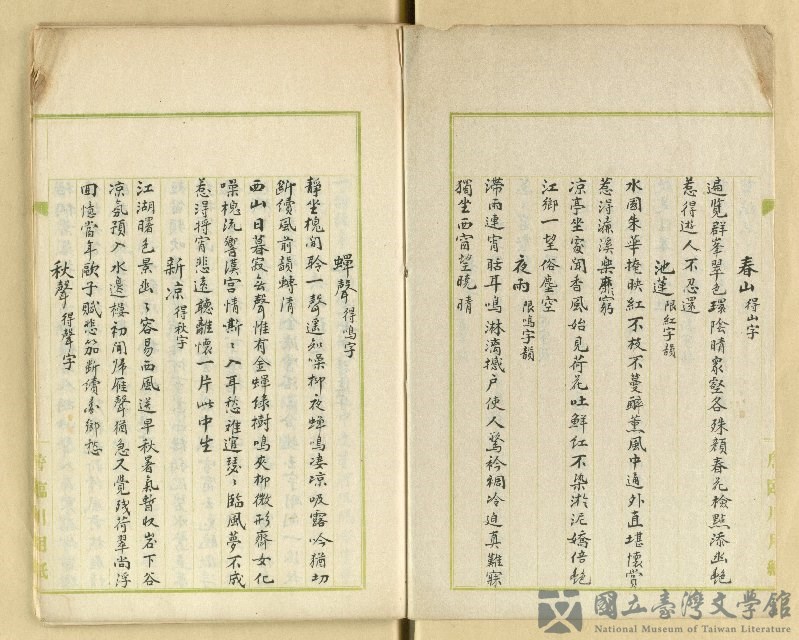 春山 得山字
遍覽群峯翠色環陰晴衆壑各殊顏春光檢點添幽艷
惹得遊人不忍還
池蓮 限紅字韻
水國朱華掩映紅不枝不蔓醉薰風中通外直堪懷賞
惹得濂溪樂靡窮
涼亭坐處聞香風始見荷花吐鮮紅不染淤泥嬌倍艷
江鄉一望俗塵空
夜雨 限鳴字韻
滯雨連宵聒耳鳴淋漓撼戶使人驚衿裯冷迫真難寐
獨坐西窗望曉晴
蟬聲 得鳴字
靜坐槐間聆一聲遙知噪柳夜蟬鳴淒涼吸露吟猶切
斷續風前韻轉清
西山日暮寂無聲惟有金蟬綠樹鳴夾柳微形齊女化
噪槐流響漢宮情嘶〻入耳愁誰遣瑟〻臨風夢不成
惹得將宵悲遠聽離懷一片此中生
新涼 得秋字
江湖曙色景幽〻容易西風送早秋暑氣暫收岩下谷
涼氣預入水邊樓初聞歸雁聲猶急又覺殘荷翠尚浮
回憶當年歐子賦悲笳斷續動鄉愁
秋聲 得聲字
國立臺灣文學館
National Museum of Taiwan Literature